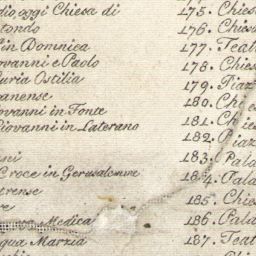 dio, oggi Chiesa di
tondo
in Domnica
ovanni e Paolo
uria Ostilia
anense
ovanni in Fonte
Giovanni in Laterano
ni
Croce in Gerusalemme
trense
re
Medica
qua Marzia
175. Chies
176. Chies
177. Teat
178. Chies
179. Piaz
180. Chies
181. Chies
182. Piaz
183. Pala
184. Pala
185. Chies
186. Pala
187. Teat